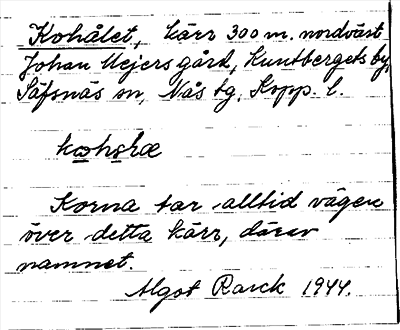 Kohålet, kärr 300 m. nordväst
Johan Nejers gård, Kuntbergets by,
Säfsnäs sn, Nås tg, Kopp. l.
Korna tar alltid vägen
över detta kärr, därav
namnet.
Algot Rarck 1944.